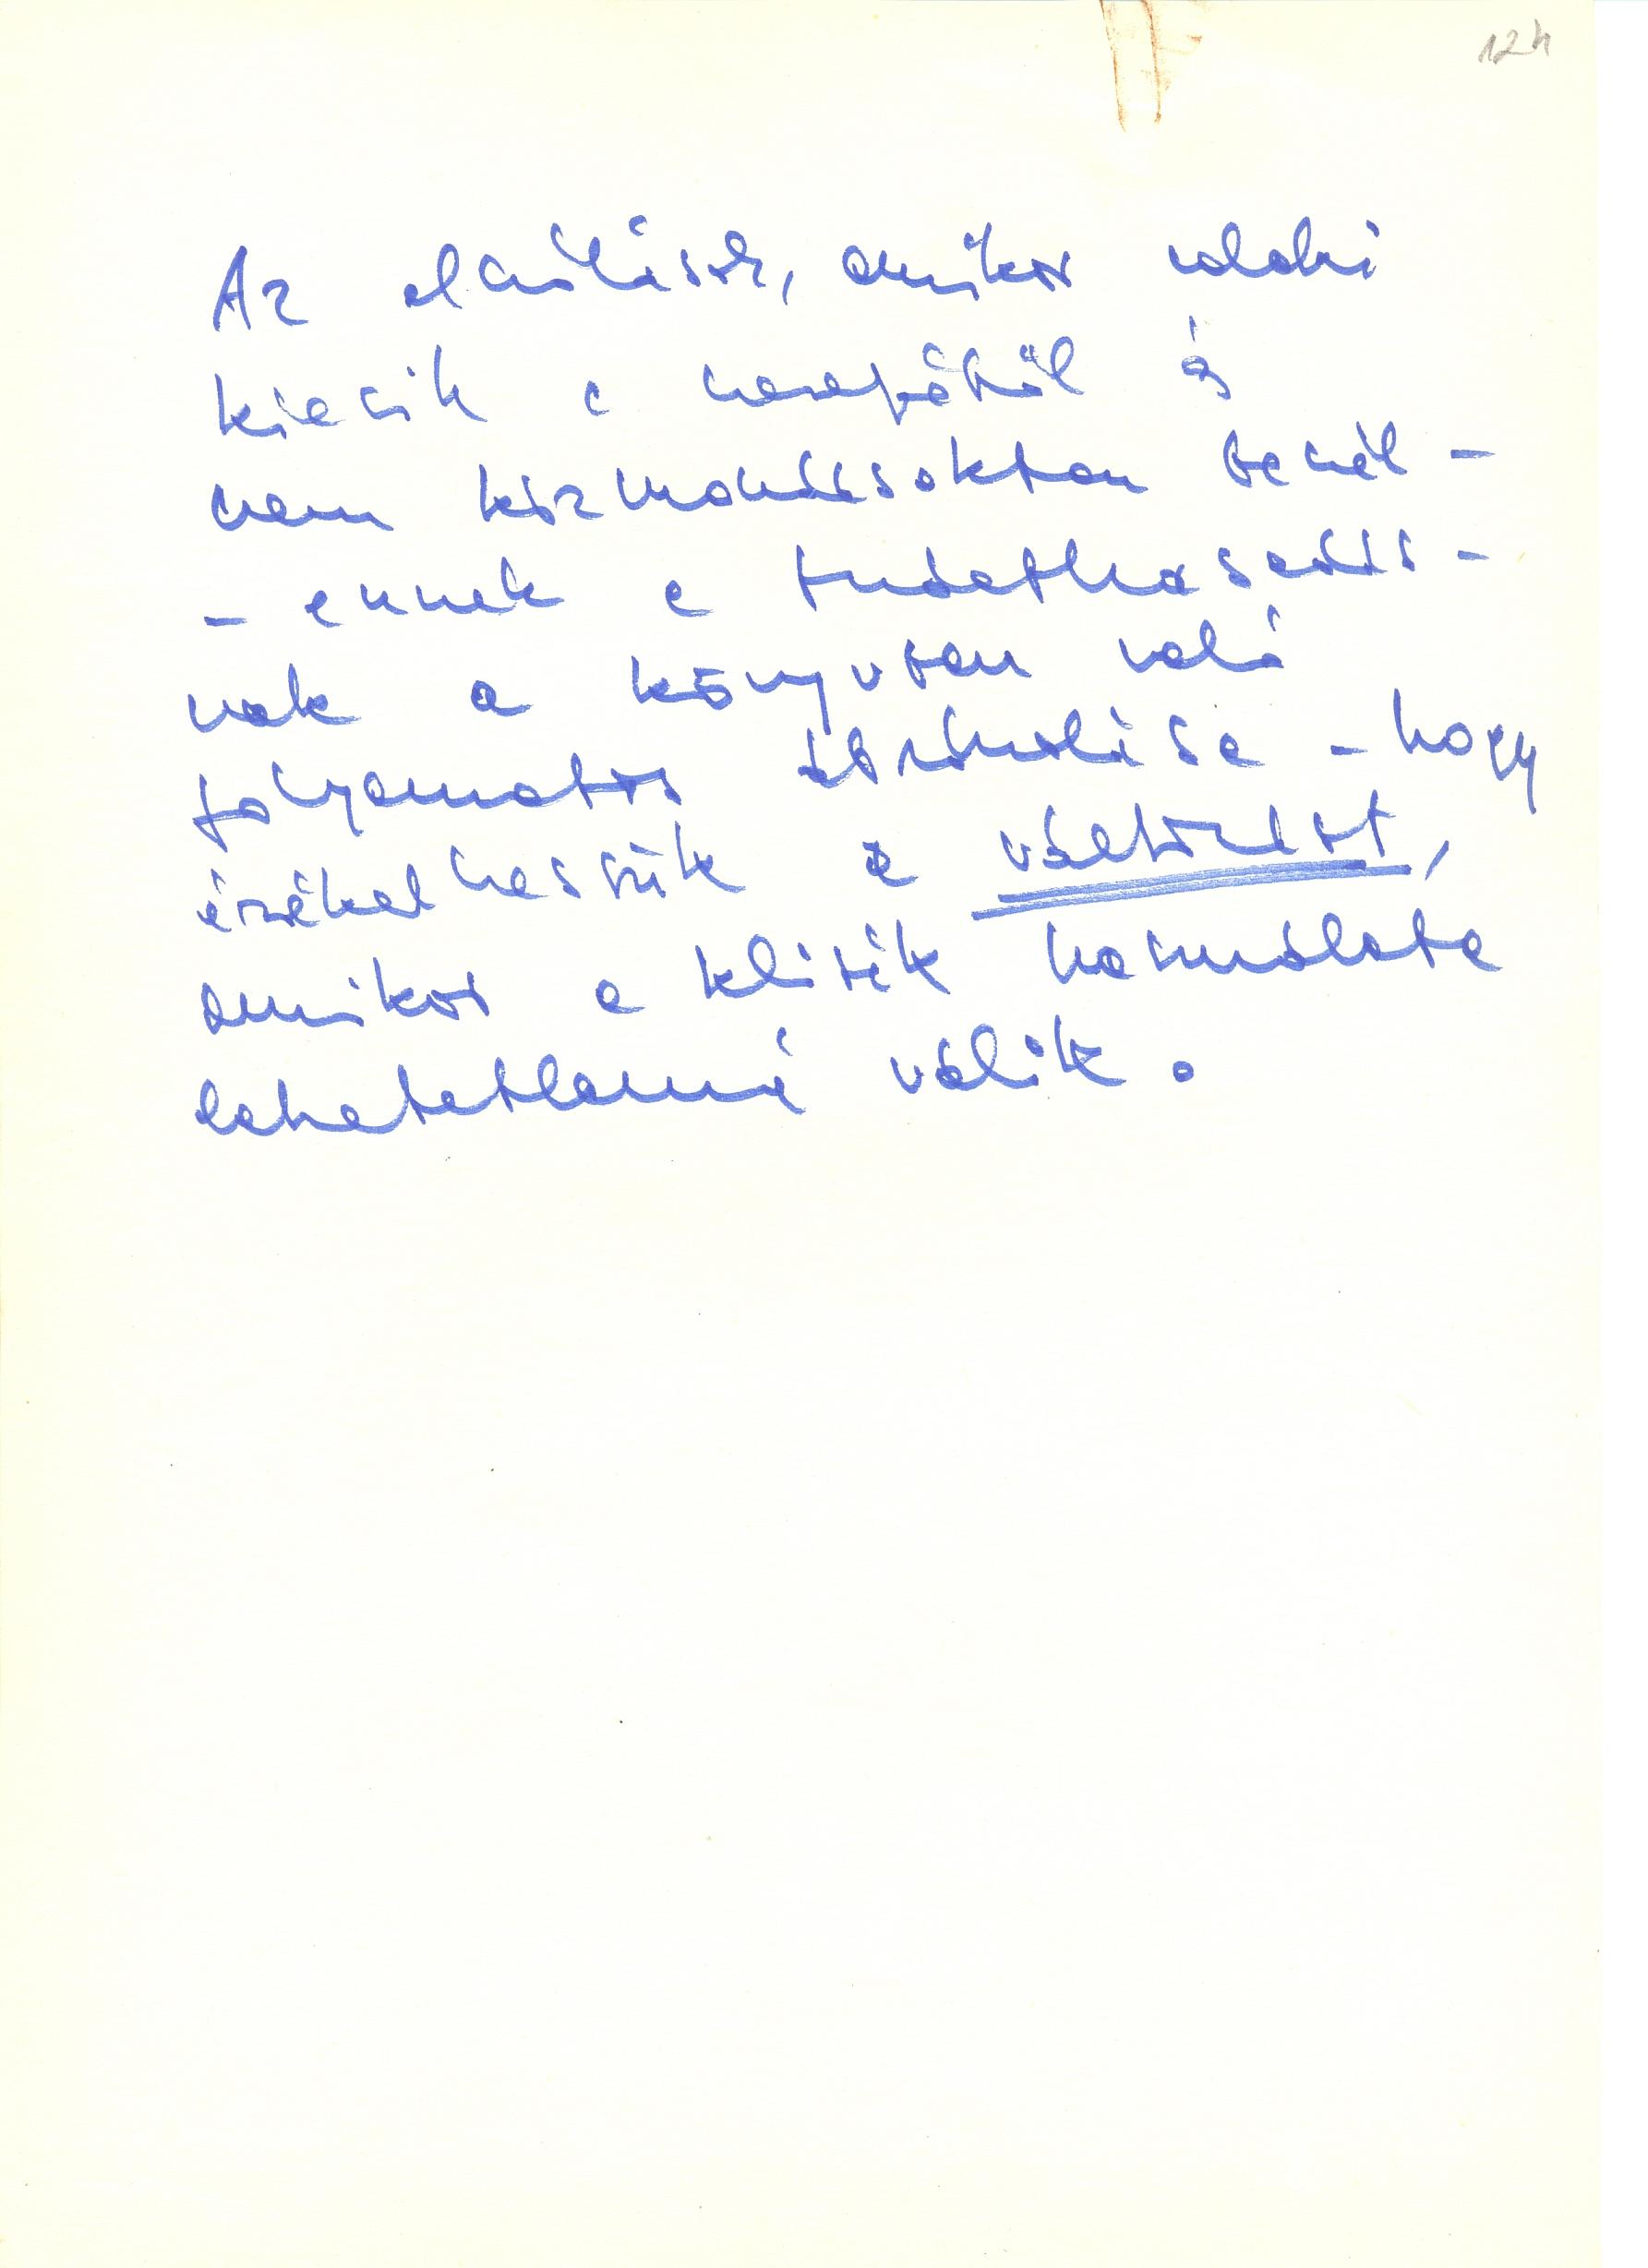 124
Az elszólások, amikor valaki
kiesik a szerepéből és
nem közmondásokban beszél –
– ennek a tudathasadás-
nak a könyvben való
folyamatos ábrázolása – hogy
érzékelhessük a változást,
amikor a klisék használata
lehetetlenné válik.